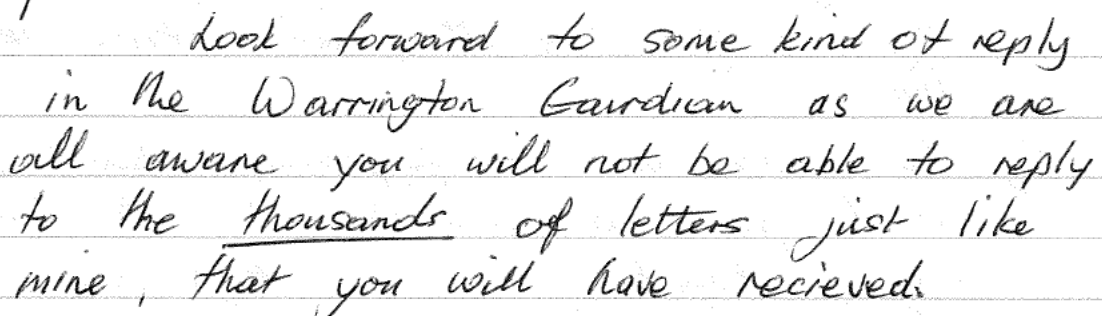 Look forward to some kind of reply
in the Warrington Gaurdian as we are
all aware you will not be able to reply
to the thousands of letters just like
mine, that you will have recieved.